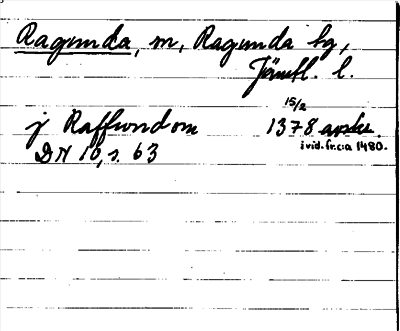 Ragunda, sn, Ragunda sg,
Jämtl. l.
15/2
j Raffwndom 1378 avskr.
i vid. fr. c:a 1480.
DN 16, s. 63